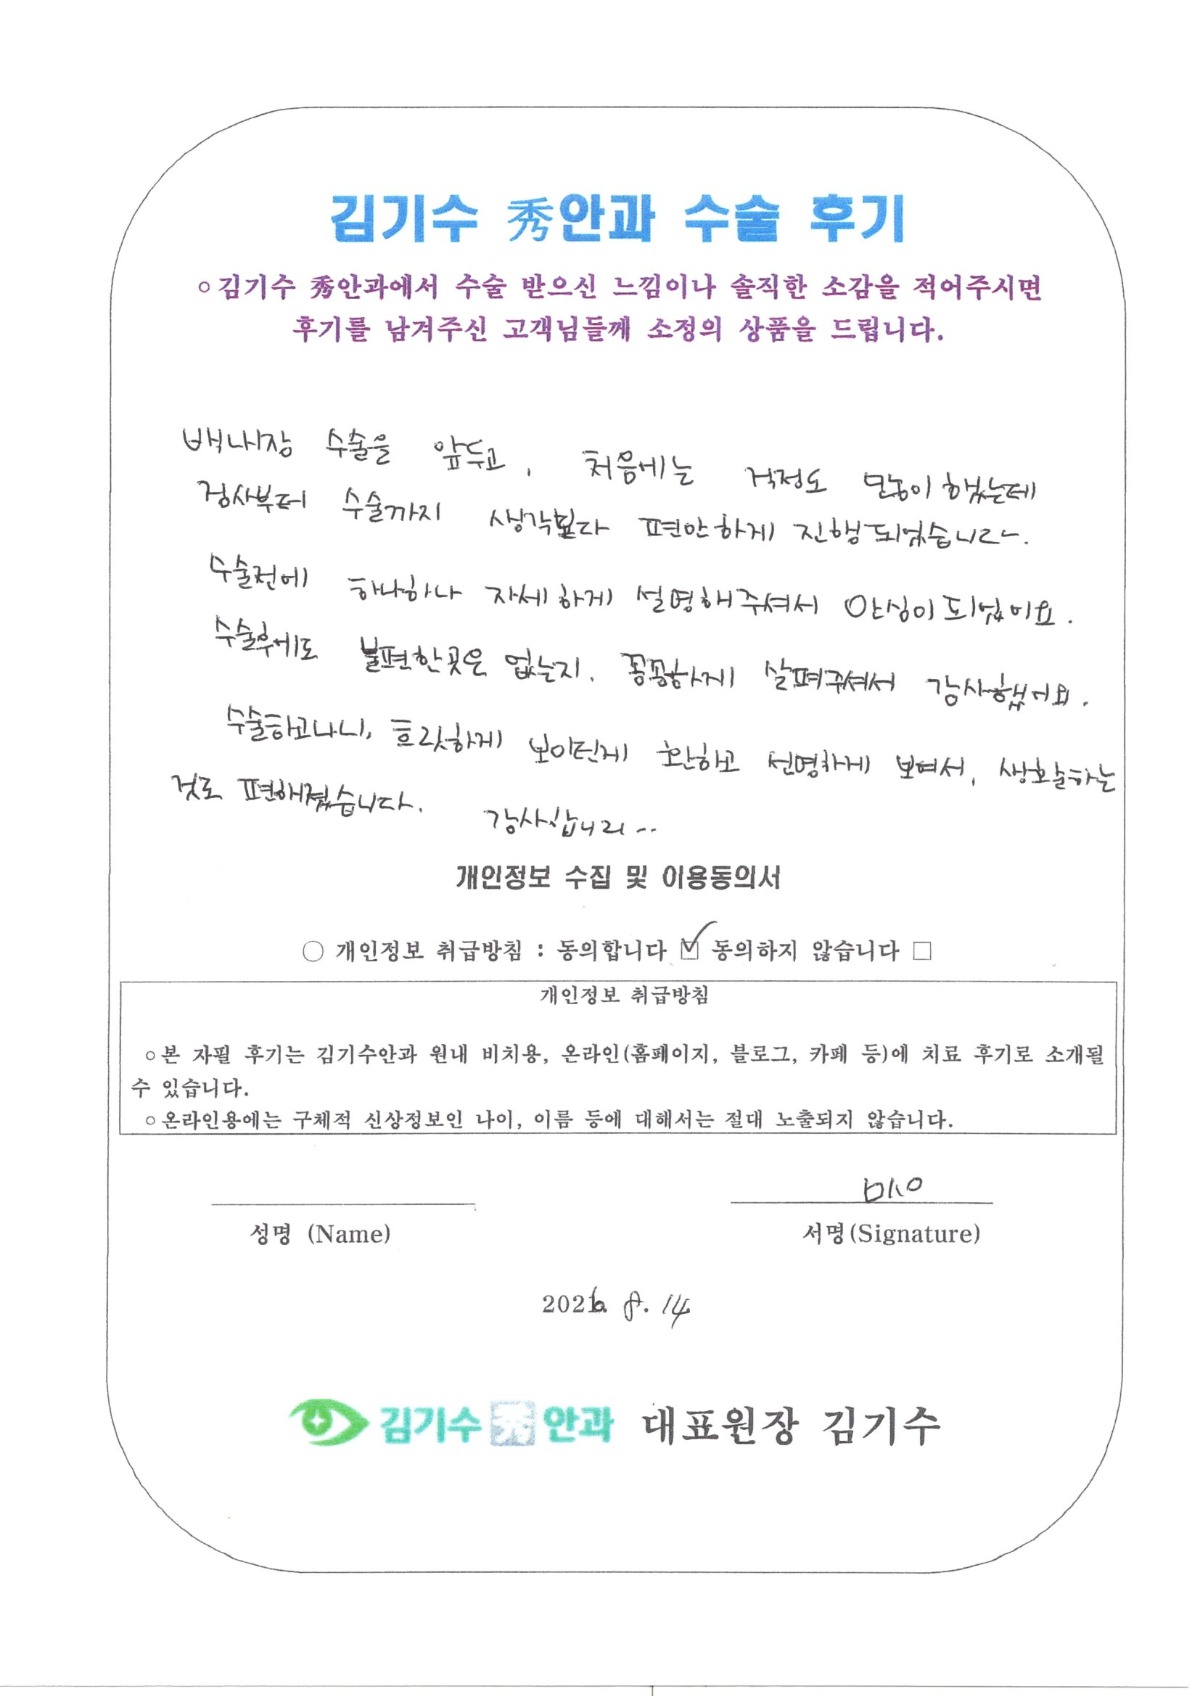 김기수 秀안과 수술 후기
○김기수 秀안과에서 수술 받으신 느낌이나 솔직한 소감을 적어주시면
후기를 남겨주신 고객님들께 소정의 상품을 드립니다.
백내장 수술을 앞두고, 처음에는 걱정도 많이 했는데
검사부터 수술까지 생각보다 편안하게 진행되었습니다.
수술전에 하나하나 자세하게 설명해주셔서 안심이 되었어요.
수술후에도 불편한곳은 없는지, 꼼꼼하게 살펴주셔서 감사했어요.
수술하고나니, 흐릿하게 보이던게 환하고 선명하게 보여서, 생활하는
것도 편해졌습니다. 감사합니다..
개인정보 수집 및 이용동의서
○ 개인정보 취급방침 : 동의합니다 ☑ 동의하지 않습니다 □
개인정보 취급방침
○본 자필 후기는 김기수안과 원내 비치용, 온라인(홈페이지, 블로그, 카페 등)에 치료 후기로 소개될
수 있습니다.
○온라인용에는 구체적 신상정보인 나이, 이름 등에 대해서는 절대 노출되지 않습니다.
성명 (Name) 서명(Signature)
2026. 8. 14
김기수 秀 안과 대표원장 김기수